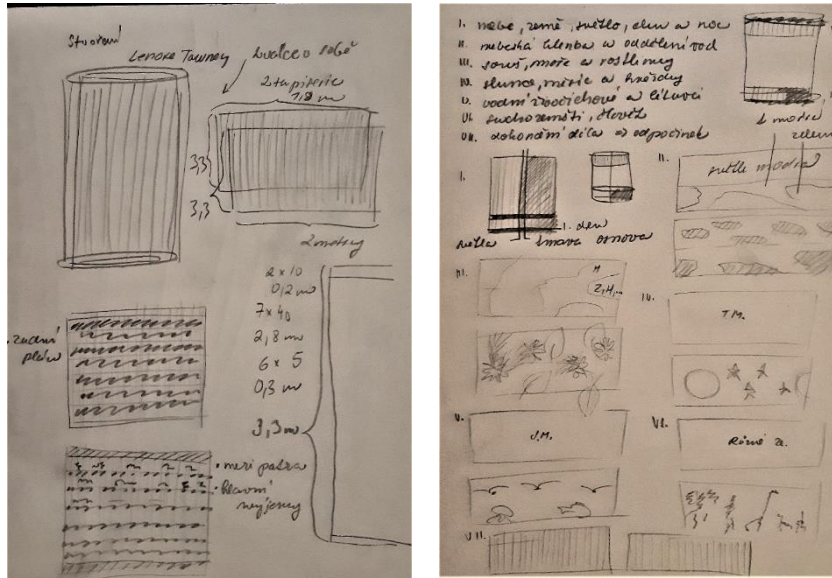 Stvoření
Lenore Tawney
2 válce o sobě
2 tapiserie
1,8 m
3,3
3,3
2 metry
2 x 10
0,2 m
7 x 40
2,8 m
6 x 5
0,3 m
3,3 m
zadní
mezi patra
hlavní
I. nebe, země, světlo, den a noc
II. nebeská klenba a oddělení vod
III. souš, moře a rostliny
IV. slunce, měsíc a hvězdy
V. vodní živočichové a létavci
VI. suchozemští, člověk
VII. dokonání díla => odpočinek
moře
zelen
I.
II.
světle modrá
1. den
světlá
tmavá osnova
III.
Z, H, ...
IV.
T.M.
V.
J.M.
VI.
Různé ze.
VII.